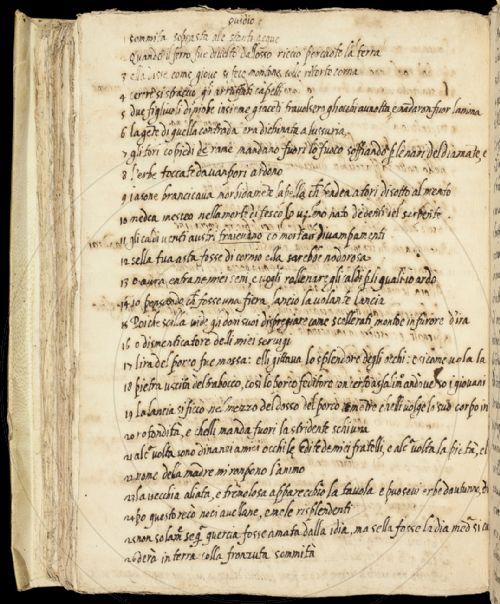 ouidio
1 sommita soprasta ale acque
2 Quando il ferro fue diviso dall osso riccio percosse la terra
3 ella disse come giove si fece montone colle ritorte corna
4 si straccio gli capelli
5 due figliuoli di insieme giaceti travolsero gli occhi a un otta e mandaron fuor lanima
6 la gete di quella contrada era dichinata a lussuria
7 gli tori co piedi de rame mandano fuori lo fuoco soffiando p le nari del diamate, e
8 l'erbe toccate da vapori ardono
9 iasone brancicava morbidamete la pelle ch pendea a tori di sotto al mento
10 medea mescco nella morte di teseo lo nato de denti del serpente
11 gli caldi venti austri traievano co mortali divampamenti
12 sella tua asta fosse di cornio ella sarebbe nodorosa
13 o aura entra ne miei seni, e vogli rollenare gli caldi p li quali io ardo
14 io pensando ch fosse una fiera, lancio la volante lancia
15 Poi che scilla vide gli doni suoi dispregiare come scellerati monto e in furore d ira
16 o dismenticatore delli miei servigi
17 lira del porco fue mossa: elli gittava lo splendore degli occhi: e sicome vola la
18 pietra uscita del trabocco, cosi lo porco feditore con certo assalim ando verso i giovani
19 la lancia si ficco nel mezzo del dosso del porco e mentre ch elli volge lo suo corpo in
20 rofondita, e ch elli manda fuori la stridente schiuma
21 alc volta sono dinanzi a miei occhi le fedite de miei fratelli, e alc volta la pieta, el
22 nome dela madre mi rompeno l animo
23 la vecchia aliata, e tremolosa apparecchio la tavola e puosevi erbe d autunno,
24 po questo reco noci ave lane, e mele risplendenti
25 non solam seq quercia fosse amata dalla idia, ma sella fosse la dia med si ca
26 dera in terra colla fronzuta sommita